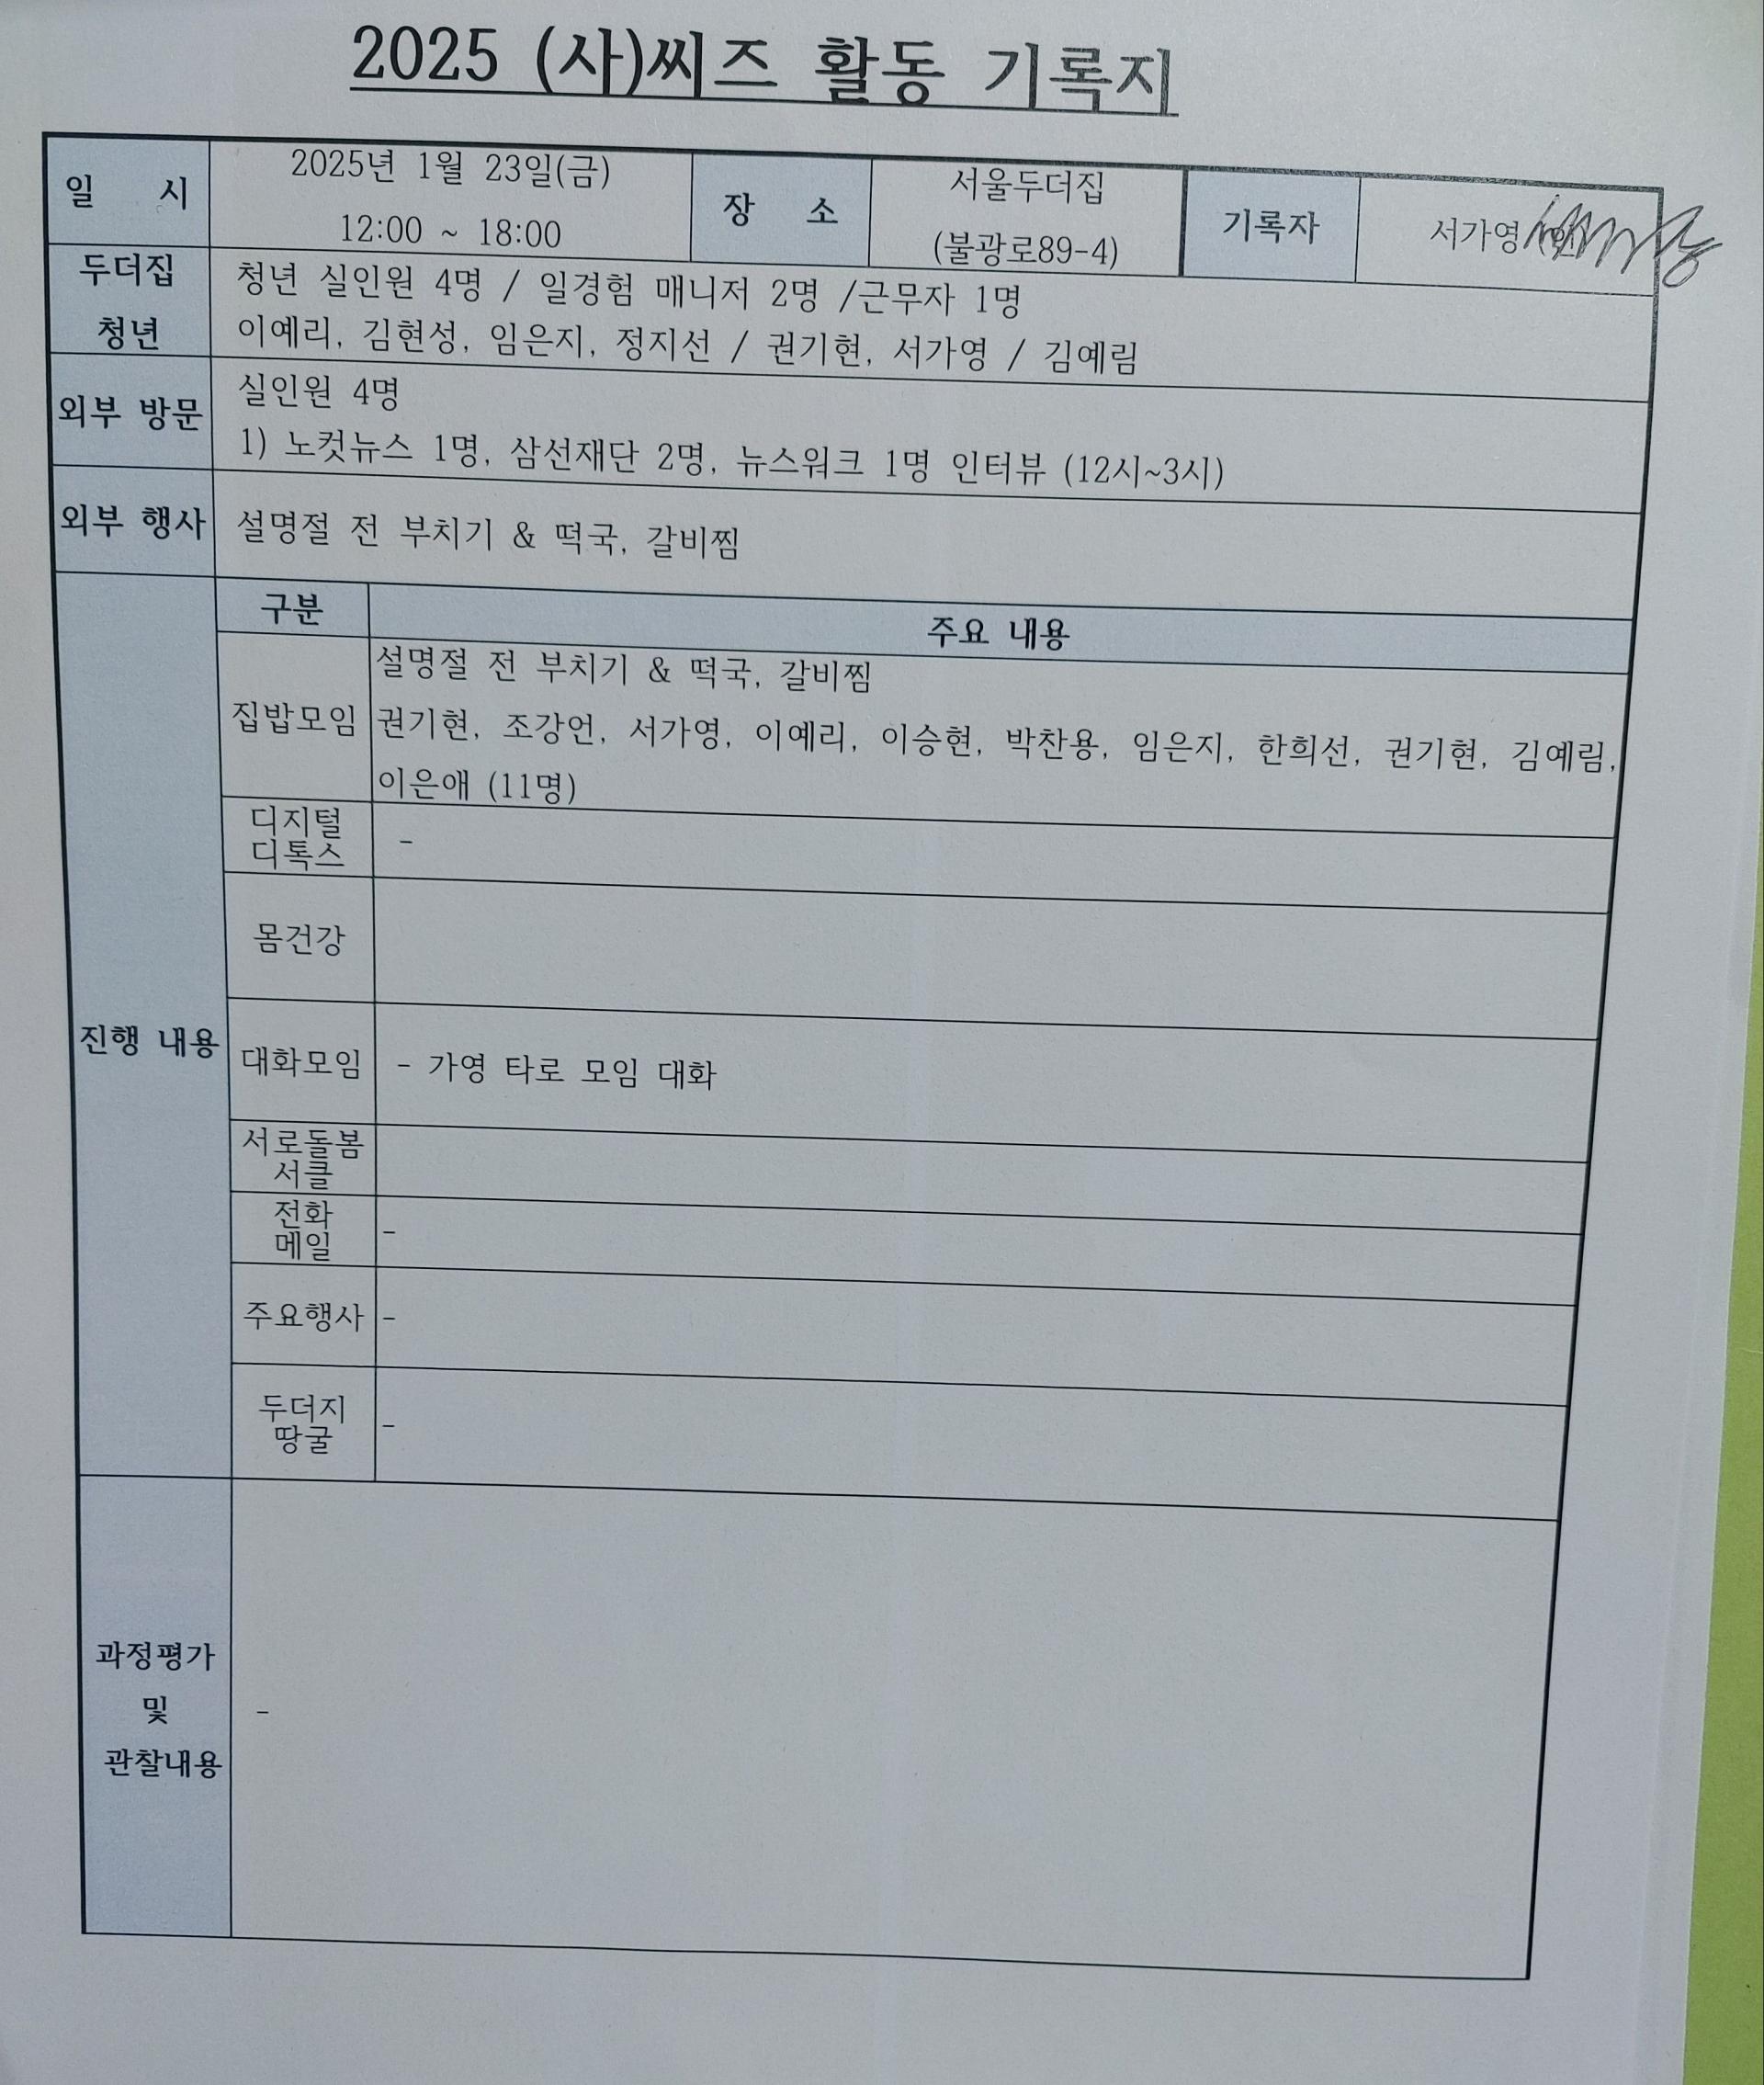 2025 (사)씨즈 활동 기록지
일 시
2025년 1월 23일(금)
12:00 ~ 18:00
장 소
서울두더집
(불광로89-4)
기록자
서가영
두더집
청년
청년 실인원 4명 / 일경험 매니저 2명 /근무자 1명
이예리, 김현성, 임은지, 정지선 / 권기현, 서가영 / 김예림
외부 방문
실인원 4명
1) 노컷뉴스 1명, 삼선재단 2명, 뉴스워크 1명 인터뷰 (12시~3시)
외부 행사
설명절 전 부치기 & 떡국, 갈비찜
진행 내용
구분
주요 내용
집밥모임
설명절 전 부치기 & 떡국, 갈비찜
권기현, 조강언, 서가영, 이예리, 이승현, 박찬용, 임은지, 한희선, 권기현, 김예림,
이은애 (11명)
디지털
디톡스
-
몸건강
대화모임
- 가영 타로 모임 대화
서로돌봄
서클
전화
메일
-
주요행사
-
두더지
땅굴
-
과정평가
및
관찰내용
-